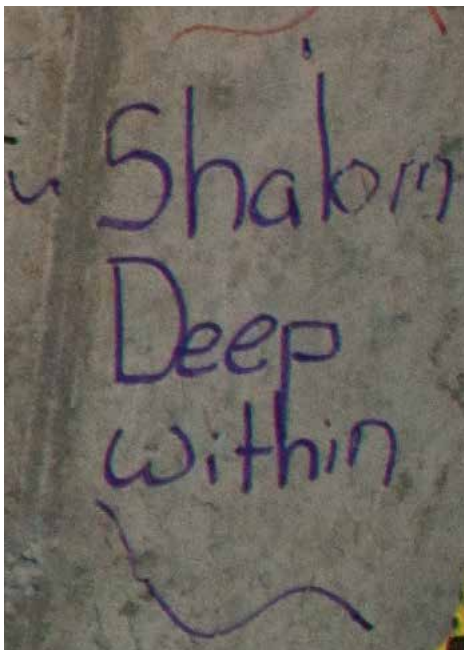 Shalom
Deep
within